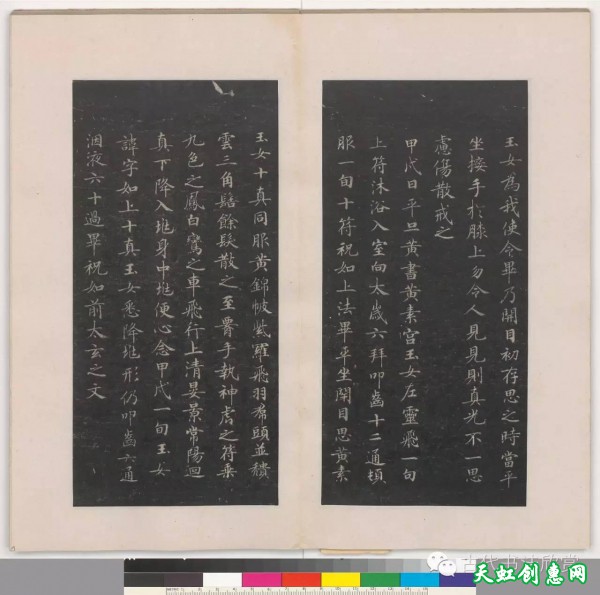 玉女為我使令畢乃開目初存思之時當平
坐接手於膝上勿令人見見則真光不一思
慮傷散戒之
甲戌日平旦黃書黃素宮玉女左靈飛一旬
上符沐浴入室向太歲六拜叩齒十二通頓
服一旬十符祝如上法畢平坐閉目思黃素
玉女十真同服黃錦帔紫羅飛羽裙頭並頹
雲三角髻餘髮散之至署手執神虎之符乘
九色之鳳白鸞之車飛行上清晏景常陽迴
真下降入埊身中埊便心念甲戌一旬玉女
諱字如上十真玉女悉降埊形仍叩齒六通
咽液六十過畢祝如前太玄之文
古代书法欣赏
天虹创惠网